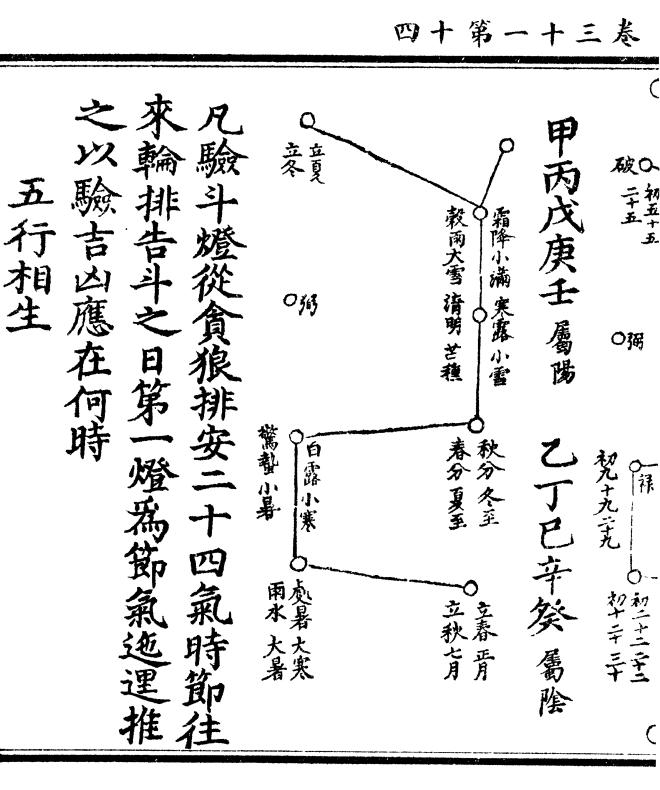 卷三十一第十四
破
初五十五
二十五
弼
祿
初九十九二十九
初二十二二十二
初十二十三十
甲丙戊庚壬屬陽
乙丁巳辛癸屬陰
霜降小滿
穀雨大雪
寒露小雪
清明芒種
秋分冬至
春分夏至
立春正月
立秋七月
立夏
立冬
弼
白露小寒
驚蟄小暑
處暑大寒
雨水大暑
凡驗斗燈從貪狼排安二十四氣時節往
來輪排告斗之日第一燈爲節氣迤邐推
之以驗吉凶應在何時
五行相生